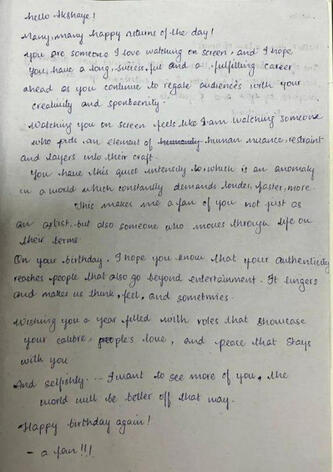 hello Akshaye!
Many, many happy returns of the day!
you are someone I love watching on screen, and I hope
you have a long, successful and a fulfilling career
ahead as you continue to regale audiences with your
creativity and spontaneity.
Watching you on screen feels like I am watching someone
who puts an element of humanly human nuance, restraint
and layers into their craft.
You have this quiet intensity to, which is an anomaly
in a world which constantly demands louder, faster, more.
This makes me a fan of you not just as
an artist, but also someone who moves through life on
their terms.
On your birthday, I hope you know that your authenticity
reaches people that also go beyond entertainment. It lingers
and makes us think, feel, and sometimes.
Wishing you a year filled with roles that showcase
your calibre, people's love, and peace that stays
with you.
And selfishly... I want to see more of you, the
world will be better off that way.
Happy birthday again!
- a fan!!!